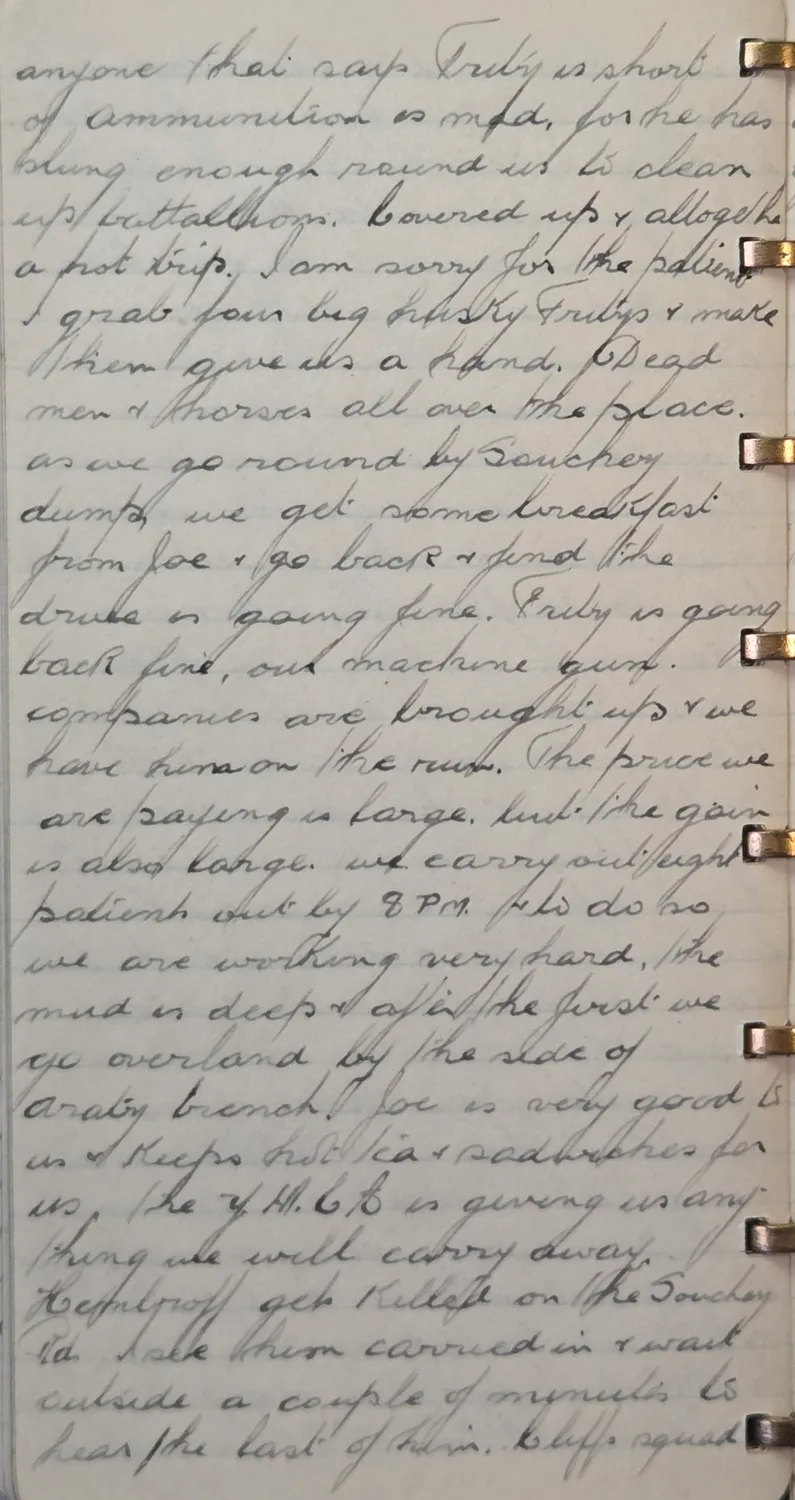 anyone that says Fritz is short
of ammunition is mad, for he has
slung enough round us to clean
up battallions. Covered up & alltogethe
a hot trip. I am sorry for the patient
I grab four big husky Fritzs & make
them give us a hand. Dead
men & horses all over the place.
as we go round by Souchey
dump, we get some breakfast
from Joe & go back & find the
drive is going fine. Fritz is going
back fine, our machine gun.
companies are brought up & we
have him on the run. The price we
are paying is large. but the gain
is also large. we carry out eight
patients out by 8 PM. & to do so
we are working very hard, the
mud is deep & after the first we
go overland by the side of
Araby trench. Joe is very good to
us & keeps hot tea & sadwiches for
us, the Y.M.C.A is giving us any
thing we will carry away.
Hembroff gets killed on the Souchey
Rd I see him carried in & wait
outside a couple of minutes to
hear the last of him. Cliffs squad